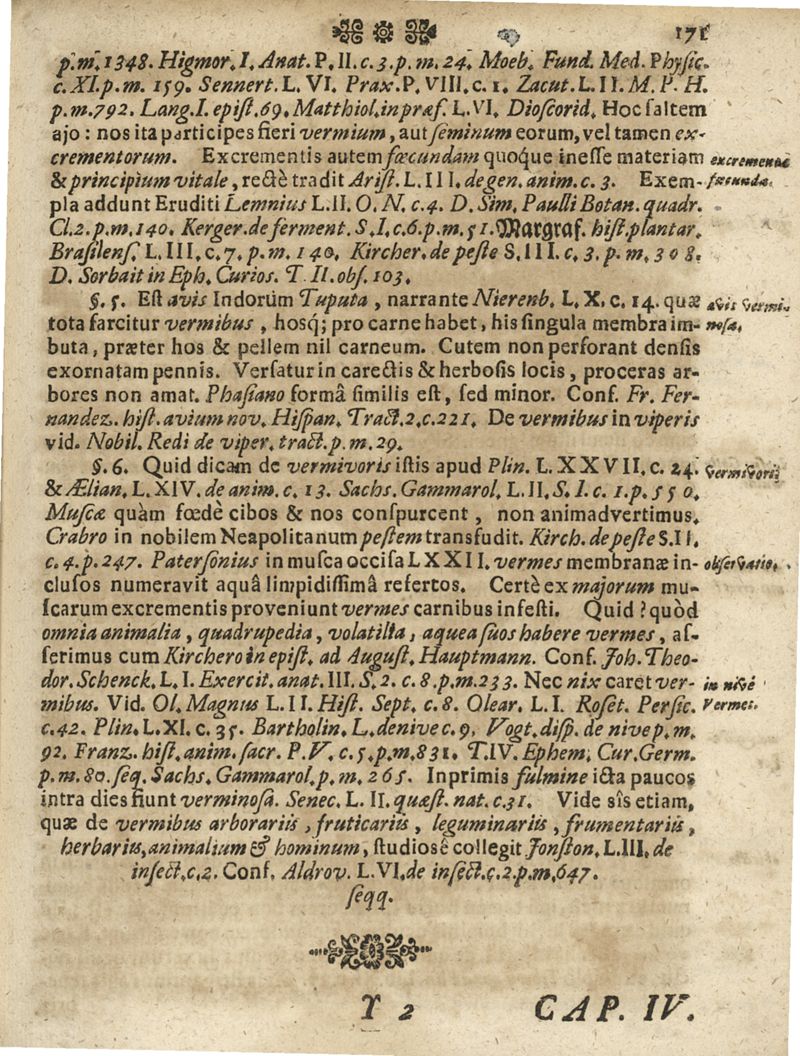 171
p.m. 1348. Higmor. I. Anat. P. II. c. 3. p. m. 24. Moeb. Fund. Med. Physic.
c. XI. p. m. 159. Sennert. L. VI. Prax. P. VIII. c. 1. Zacut. L. II. M. P. H.
p. m. 792. Lang. I. epist. 69. Matthiol. in præf. L. VI. Dioscorid. Hoc saltem
ajo: nos ita participes fieri vermium, aut seminum eorum, vel tamen ex-
crementorum. Excrementis autem fœcundam quoque inesse materiam
& principium vitale, rectè tradit Arist. L. III. de gen. anim. c. 3. Exem-
pla addunt Eruditi Lemnius L. II. O. N. c. 4. D. Sim. Paulli Botan. quadr.
Cl. 2. p. m. 140. Kerger. de ferment. S. I. c. 6. p. m. 51. Margraf. hist. plantar.
Brasilens. L. III. c. 7. p. m. 140. Kircher. de peste S. III. c. 3. p. m. 308.
D. Sorbait in Eph. Curios. T. II. obs. 103.
excrementa
fœcunda.
§. 5. Est avis Indorum Tuputa, narrante Nierenb. L. X. c. 14. quæ
tota farcitur vermibus, hosq; pro carne habet, his singula membra im-
buta, præter hos & pellem nil carneum. Cutem non perforant densis
exornatam pennis. Versatur in carectis & herbosis locis, proceras ar-
bores non amat. Phasiano formâ similis est, sed minor. Conf. Fr. Fer-
nandez. hist. avium nov. Hispan. Tract. 2. c. 221. De vermibus in viperis
vid. Nobil. Redi de viper. tract. p. m. 29.
avis vermi-
nosa.
§. 6. Quid dicam de vermivoris istis apud Plin. L. XXVII. c. 24.
& Ælian. L. XIV. de anim. c. 13. Sachs. Gammarol. L. II. S. I. c. 1. p. 550.
Muscæ quàm fœdè cibos & nos conspurcent, non animadvertimus.
Crabro in nobilem Neapolitanum pestem transfudit. Kirch. de peste S. II.
c. 4. p. 247. Patersonius in musca occisa LXXII. vermes membranæ in-
clusos numeravit aquâ limpidissimâ refertos. Certè ex majorum mu-
scarum excrementis proveniunt vermes carnibus infesti. Quid? quòd
omnia animalia, quadrupedia, volatilia, aquea suos habere vermes, as-
serimus cum Kirchero in epist. ad August. Hauptmann. Conf. Joh. Theo-
dor. Schenck. L. I. Exercit. anat. III. S. 2. c. 8. p. m. 233. Nec nix caret ver-
mibus. Vid. Ol. Magnus L. II. Hist. Sept. c. 8. Olear. L. I. Roset. Persic.
c. 42. Plin. L. XI. c. 35. Bartholin. L. de nive c. 9. Vogt. disp. de nive p. m.
92. Franz. hist. anim. sacr. P. V. c. 5. p. m. 831. T. IV. Ephem. Cur. Germ.
p. m. 80. seq. Sachs. Gammarol. p. m. 265. Inprimis fulmine icta paucos
intra dies fiunt verminosa. Senec. L. II. quæst. nat. c. 31. Vide sîs etiam,
quæ de vermibus arborariis, fruticariis, leguminariis, frumentariis,
herbariis, animalium & hominum, studiosè collegit Jonston. L. III. de
insect. c. 2. Conf. Aldrov. L. VI. de insect. c. 2. p. m. 647.
seqq.
Vermivoris
observatio.
in nive
Vermes.
Y 2
CAP. IV.